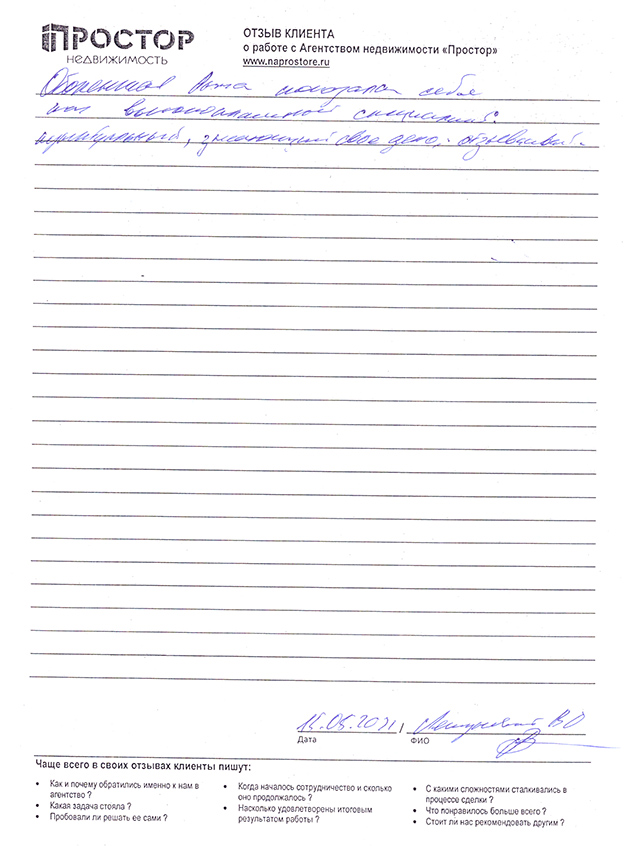 ПРОСТОР
НЕДВИЖИМОСТЬ
ОТЗЫВ КЛИЕНТА
о работе с Агентством недвижимости «Простор»
www.naprostore.ru
показала себя
как
пунктуальный, знающий свое дело, отзывчивый.
15.05.2021 /
В О
Дата
ФИО
Чаще всего в своих отзывах клиенты пишут:
• Как и почему обратились именно к нам в
агентство ?
• Какая задача стояла ?
• Пробовали ли решать ее сами ?
• Когда началось сотрудничество и сколько
оно продолжалось ?
• Насколько удовлетворены итоговым
результатом работы ?
• С какими сложностями сталкивались в
процессе сделки ?
• Что понравилось больше всего ?
• Стоит ли нас рекомендовать другим ?